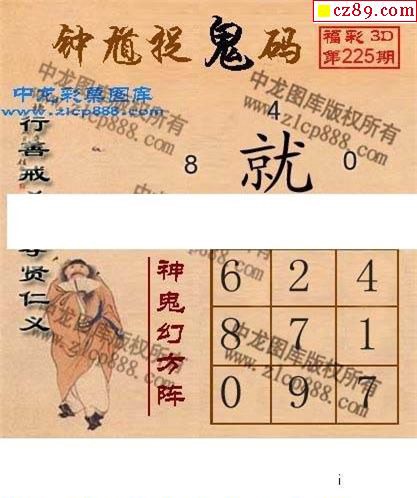 cz89.com
钟馗捉鬼码
福彩 3D
第225期
中龙彩票图库
www.zlcp888.com
中龙图库版权所有
www.zlcp888.com
4
8 就 0
行善戒
贤仁义
神鬼幻方阵
6 2 4
8 7 1
0 9 7
中龙图库版权所有
www.zlcp888.com
i